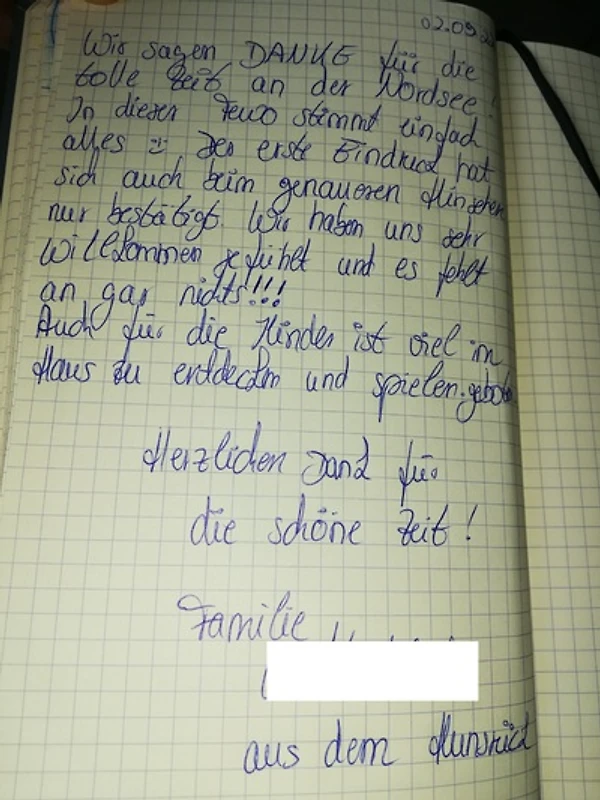 02.09.
Wir sagen DANKE für die
tolle Zeit an der Nordsee!
In dieser Fewo stimmt einfach
alles :) Der erste Eindruck hat
sich auch beim genaueren Hinsehen
nur bestätigt. Wir haben uns sehr
willkommen gefühlt und es fehlt
an gar nichts!!!
Auch für die Kinder ist viel im
Haus zu entdecken und spielen geboten
Herzlichen Dank für
die schöne Zeit!
Familie
aus dem Hunsrück